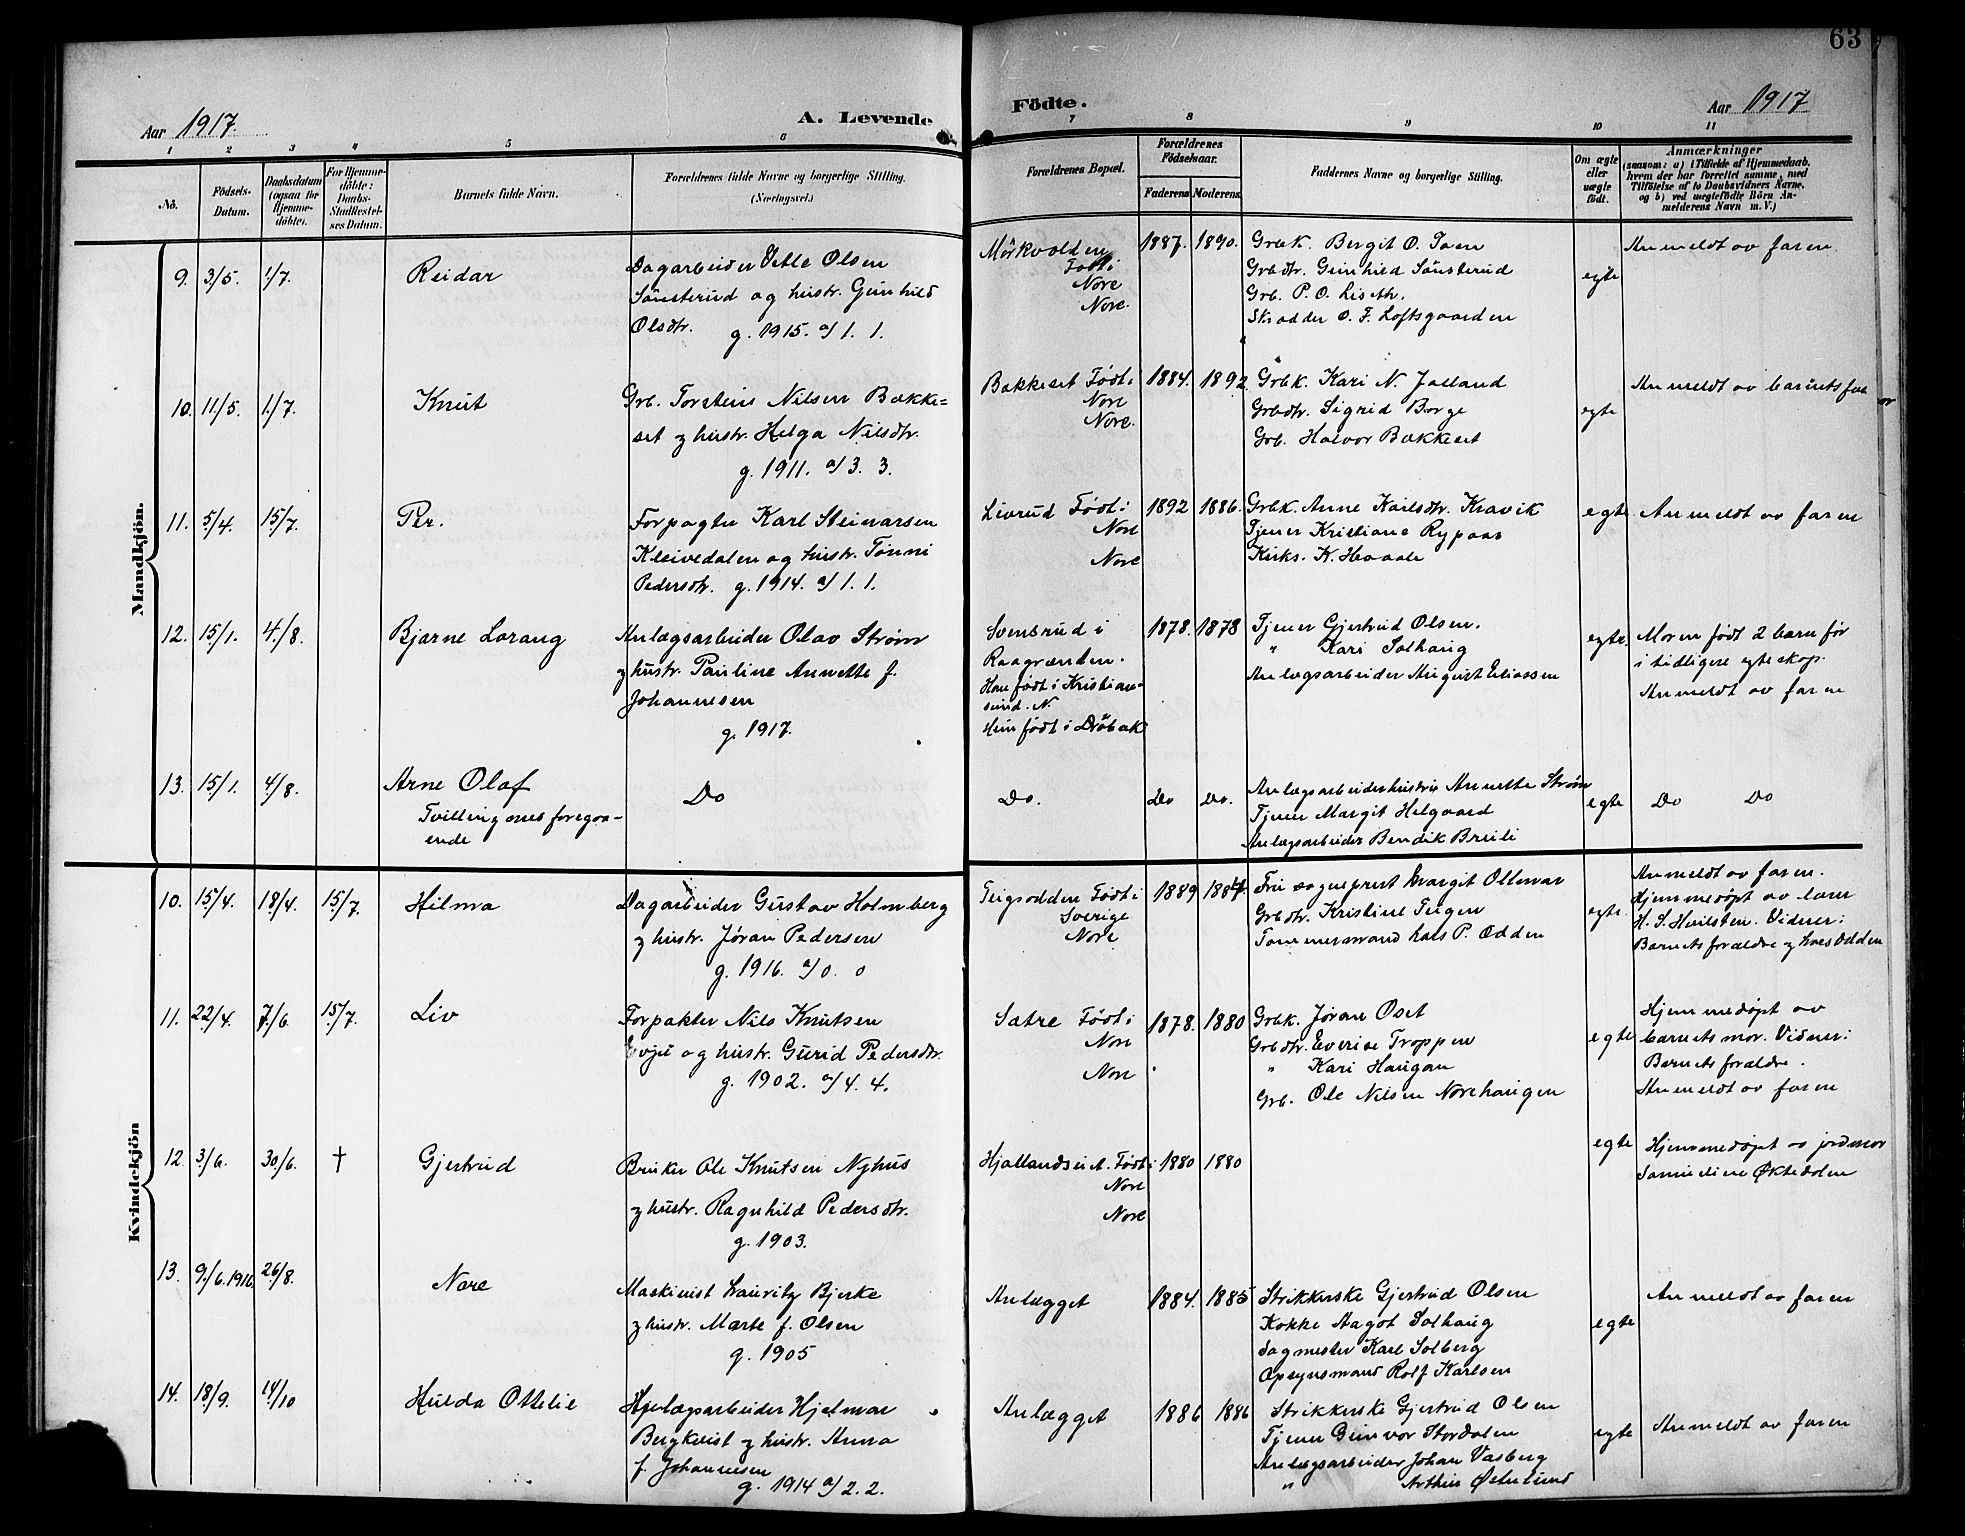 63
Aar 1917.
A. Levende
Födte.
Aar 1917
1 2 3 4 5 6 7 8 9 10 11
Nô.
Födsels-
Datum.
Daabsdatum
(ogsaa for
Hjemme-
döbte).
For Hjemme-
döbte:
Daabs-
Stadfæstel-
ses Datum.
Barnets fulde Navn.
Forældrenes fulde Navne og borgerlige Stilling.
(Næringsvei.)
Forældrenes Bopæl.
Forældrenes
Födselsaar.
Faderens. Moderens.
Faddernes Navne og borgerlige Stilling.
Om ægte
eller
uægte
födt.
Anmærkninger
(saasom: a) i Tilfælde af Hjemmedaab,
hvem der har forrettet samme, med
Tilföielse af to Daabsvidners Navne,
og b) ved uægtefödte Börn An-
melderens Navn m. V.)
Mandkjön.
9. 3/5. 1/7. Reidar
Dagarbeider Vetle Olsen
Sönsterud og hustr. Gunhild
Olsdtr.
g. 1915. a/ 1. 1.
Mörkvolden
Födt i
Nore
Nore.
1887. 1890.
Grbk. Bergit O. Toen
Grbdtr. Gunhild Sönsterud
Grb. P. O. Liseth.
Skradder O. F. Loftsgaarden
egte
Anmeldt av faren
10. 11/5. 1/7. Knut
Grb. Torstein Nilsen Bakke=
set og hustr. Helga Nilsdtr.
g. 1911. a/ 3. 3.
Bakkeset Födt i
Nore
Nore.
1884. 1892
Grbk. Kari N. Joland
Grbdtr. Sigrid Borge
Grb. Halvor Bakkeset
egte
Anmeldt av barnets far
11. 5/4. 15/7. Per.
Forpagter Karl Steinarsen
Kleivedalen og hustr. Tønni
Pedersdtr. g. 1914. a/ 1. 1.
Livrud Födt i
Nore
Nore
1892 1886.
Grbk. Anne Kailsdtr. Kravik
Tjener Kristiane Rypaas
Kirks. K. Haaale
egte
Anmeldt av faren
12. 15/1. 4./8. Bjarne Lorang
Anlægsarbeider Olav Strøm
og hustr. Pauline Annette f.
Johannesen
g. 1917.
Svensrud i
Raagrænden.
Han født i Kristian=
sund. N.
Hun født i Dröbak
1878. 1878
Tjener Gjertrud Olsen.
" Kari Solhaug
Anlægsarbeider August Eliassen
egte.
Moren født 2 barn før
i tidligere egteskap.
Anmeldt av faren
13. 15/1. 4/8. Arne Olaf
Tvilling med foregaa-
ende
Do
Do.
Do Do.
Anlægsarbeiderhustru Annette Strøm
Tjener Margit Helgaard
Anlægsarbeider Bendik Breili
egte
Do Do
Kvindekjön
10. 15/4. 18/4. 15/7. Hilma
Dagarbeider Gustav Holmberg
og hustr. Jøran Pedersen
g. 1916. a/ 0. 0
Teigsodden Födt i
Sverige
Nore
1889 1884.
Fru sogneprest Margit Ottesar
Grbdtr. Kristine Teigen
Tømmermand Lars P. Odden
egte.
Anmeldt av faren.
Hjemmedøpt av lærer
H. S. Huilsten. Vidner:
Barnets forældre og Lars Odden
11. 22/4. 7/6. 15/7. Liv
Forpakter Nils Knutsen
Evju og hustr. Gurid Pedersdtr.
g. 1902. a/ 4. 4.
Satre Födt i
Nore
Nore
1878. 1880
Grbk. Jøran Oset
Grbdtr. Everise Troppen
" Kari Haugan
Grb. Ole Nilsen Norehaugen
egte
Hjemmedøpt av
barnets mor. Vidner:
Barnets forældre.
Anmeldt av faren
12. 3/6. 30/6. † Gjertrud
Bruker Ole Knutsen Nyhus
og hustr. Ragnhild Pedersdtr.
g. 1903.
Hjallandseiet. Födt i
Nore
Nore
1880 1880
egte
Hjemmedøpt av jordmor
Samueline Øktedalen
13. 9/6. 1916. 26/8. Nore
Maskinist Lauritz Bjerke
og hustr. Marte f. Olsen
g. 1905
Anlægget
1884. 1885
Strikkerske Gjertrud Olsen
Kokke Aagot Solhaug
Sagmester Karl Solberg
Opsynsmand Rolf Karlsen
egte
Anmeldt av faren
14. 18/9. 14/10 Hulda Ottelie
Anlægsarbeider Hjelmar
Bergkvist og hustr. Anna
f. Johannesen
g. 1914 a/ 2. 2.
Anlægget
1886 1886
Strikkerske Gjertrud Olsen
Tjener Gunvor Stordalen
Anlægsarbeider Johan Vasberg
" Arthur Østerlund
egte
Anmeldt av faren